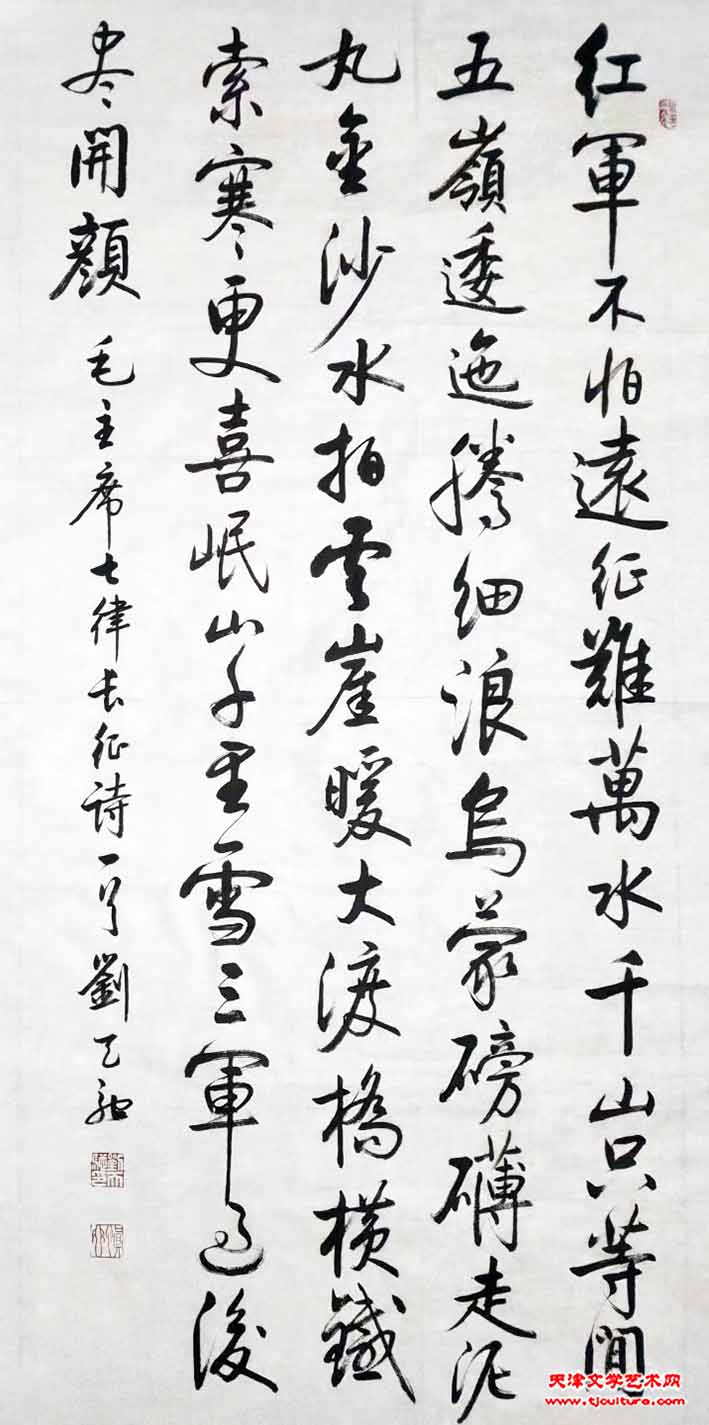 红軍不怕遠征難萬水千山只等閒
五嶺逶迤騰细浪烏蒙磅礴走泥
丸金沙水拍雲崖暖大渡橋横鐵
索寒更喜岷山千里雪三軍过後
尽開顔
毛主席七律长征诗一亨劉天馳
天津文学艺术网
www.tjculture.com